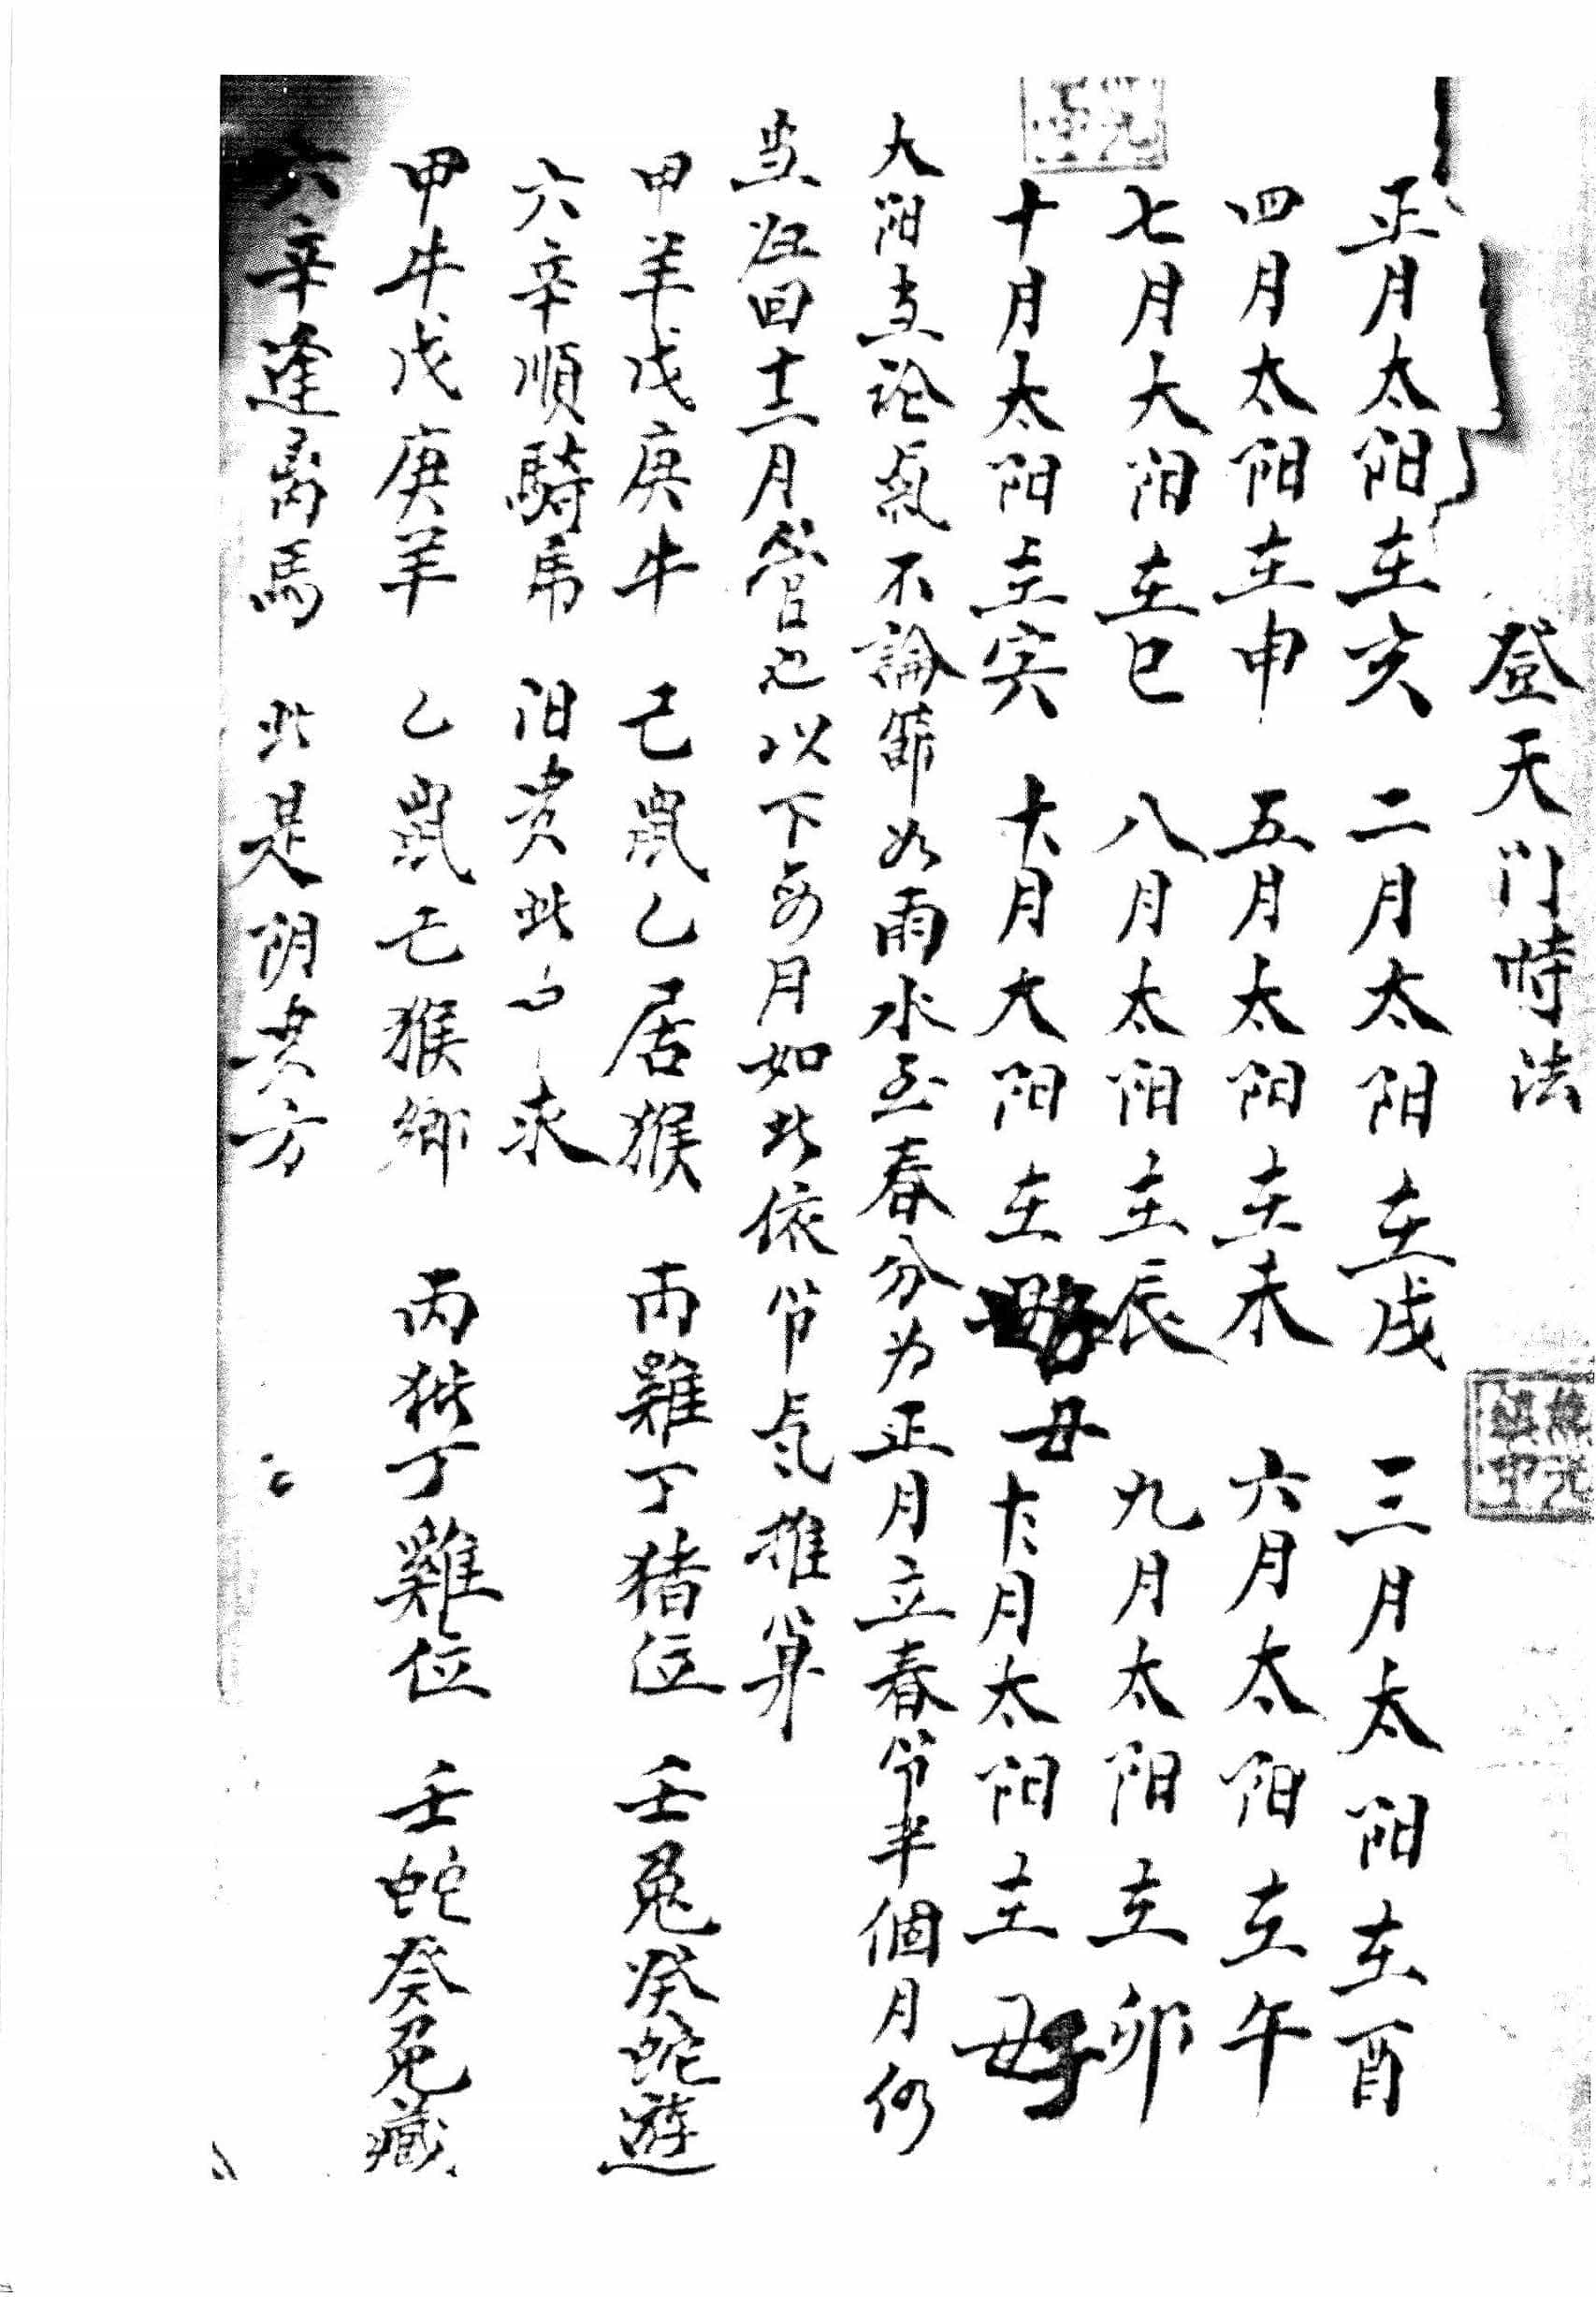 登天门時法
正月太阳在亥 二月太阳在戌 三月太阳在酉
四月太阳在申 五月太阳在未 六月太阳在午
七月大阳在巳 八月太阳在辰 九月太阳在卯
十月太阳在寅 十一月大阳在丑 十二月太阳在子
大阳在论氣不論節如雨水至春分为正月立春节半個月仍
归旧十二月管也以下每月如此依节氣推算
甲羊戊庚牛 己鼠乙居猴 丙雞丁猪位 壬兔癸蛇遊
六辛順騎虎 阳贵此中求
甲牛戊庚羊 乙鼠己猴鄉 丙猪丁雞位 壬蛇癸兔藏
六辛逢离馬 此是阴贵方